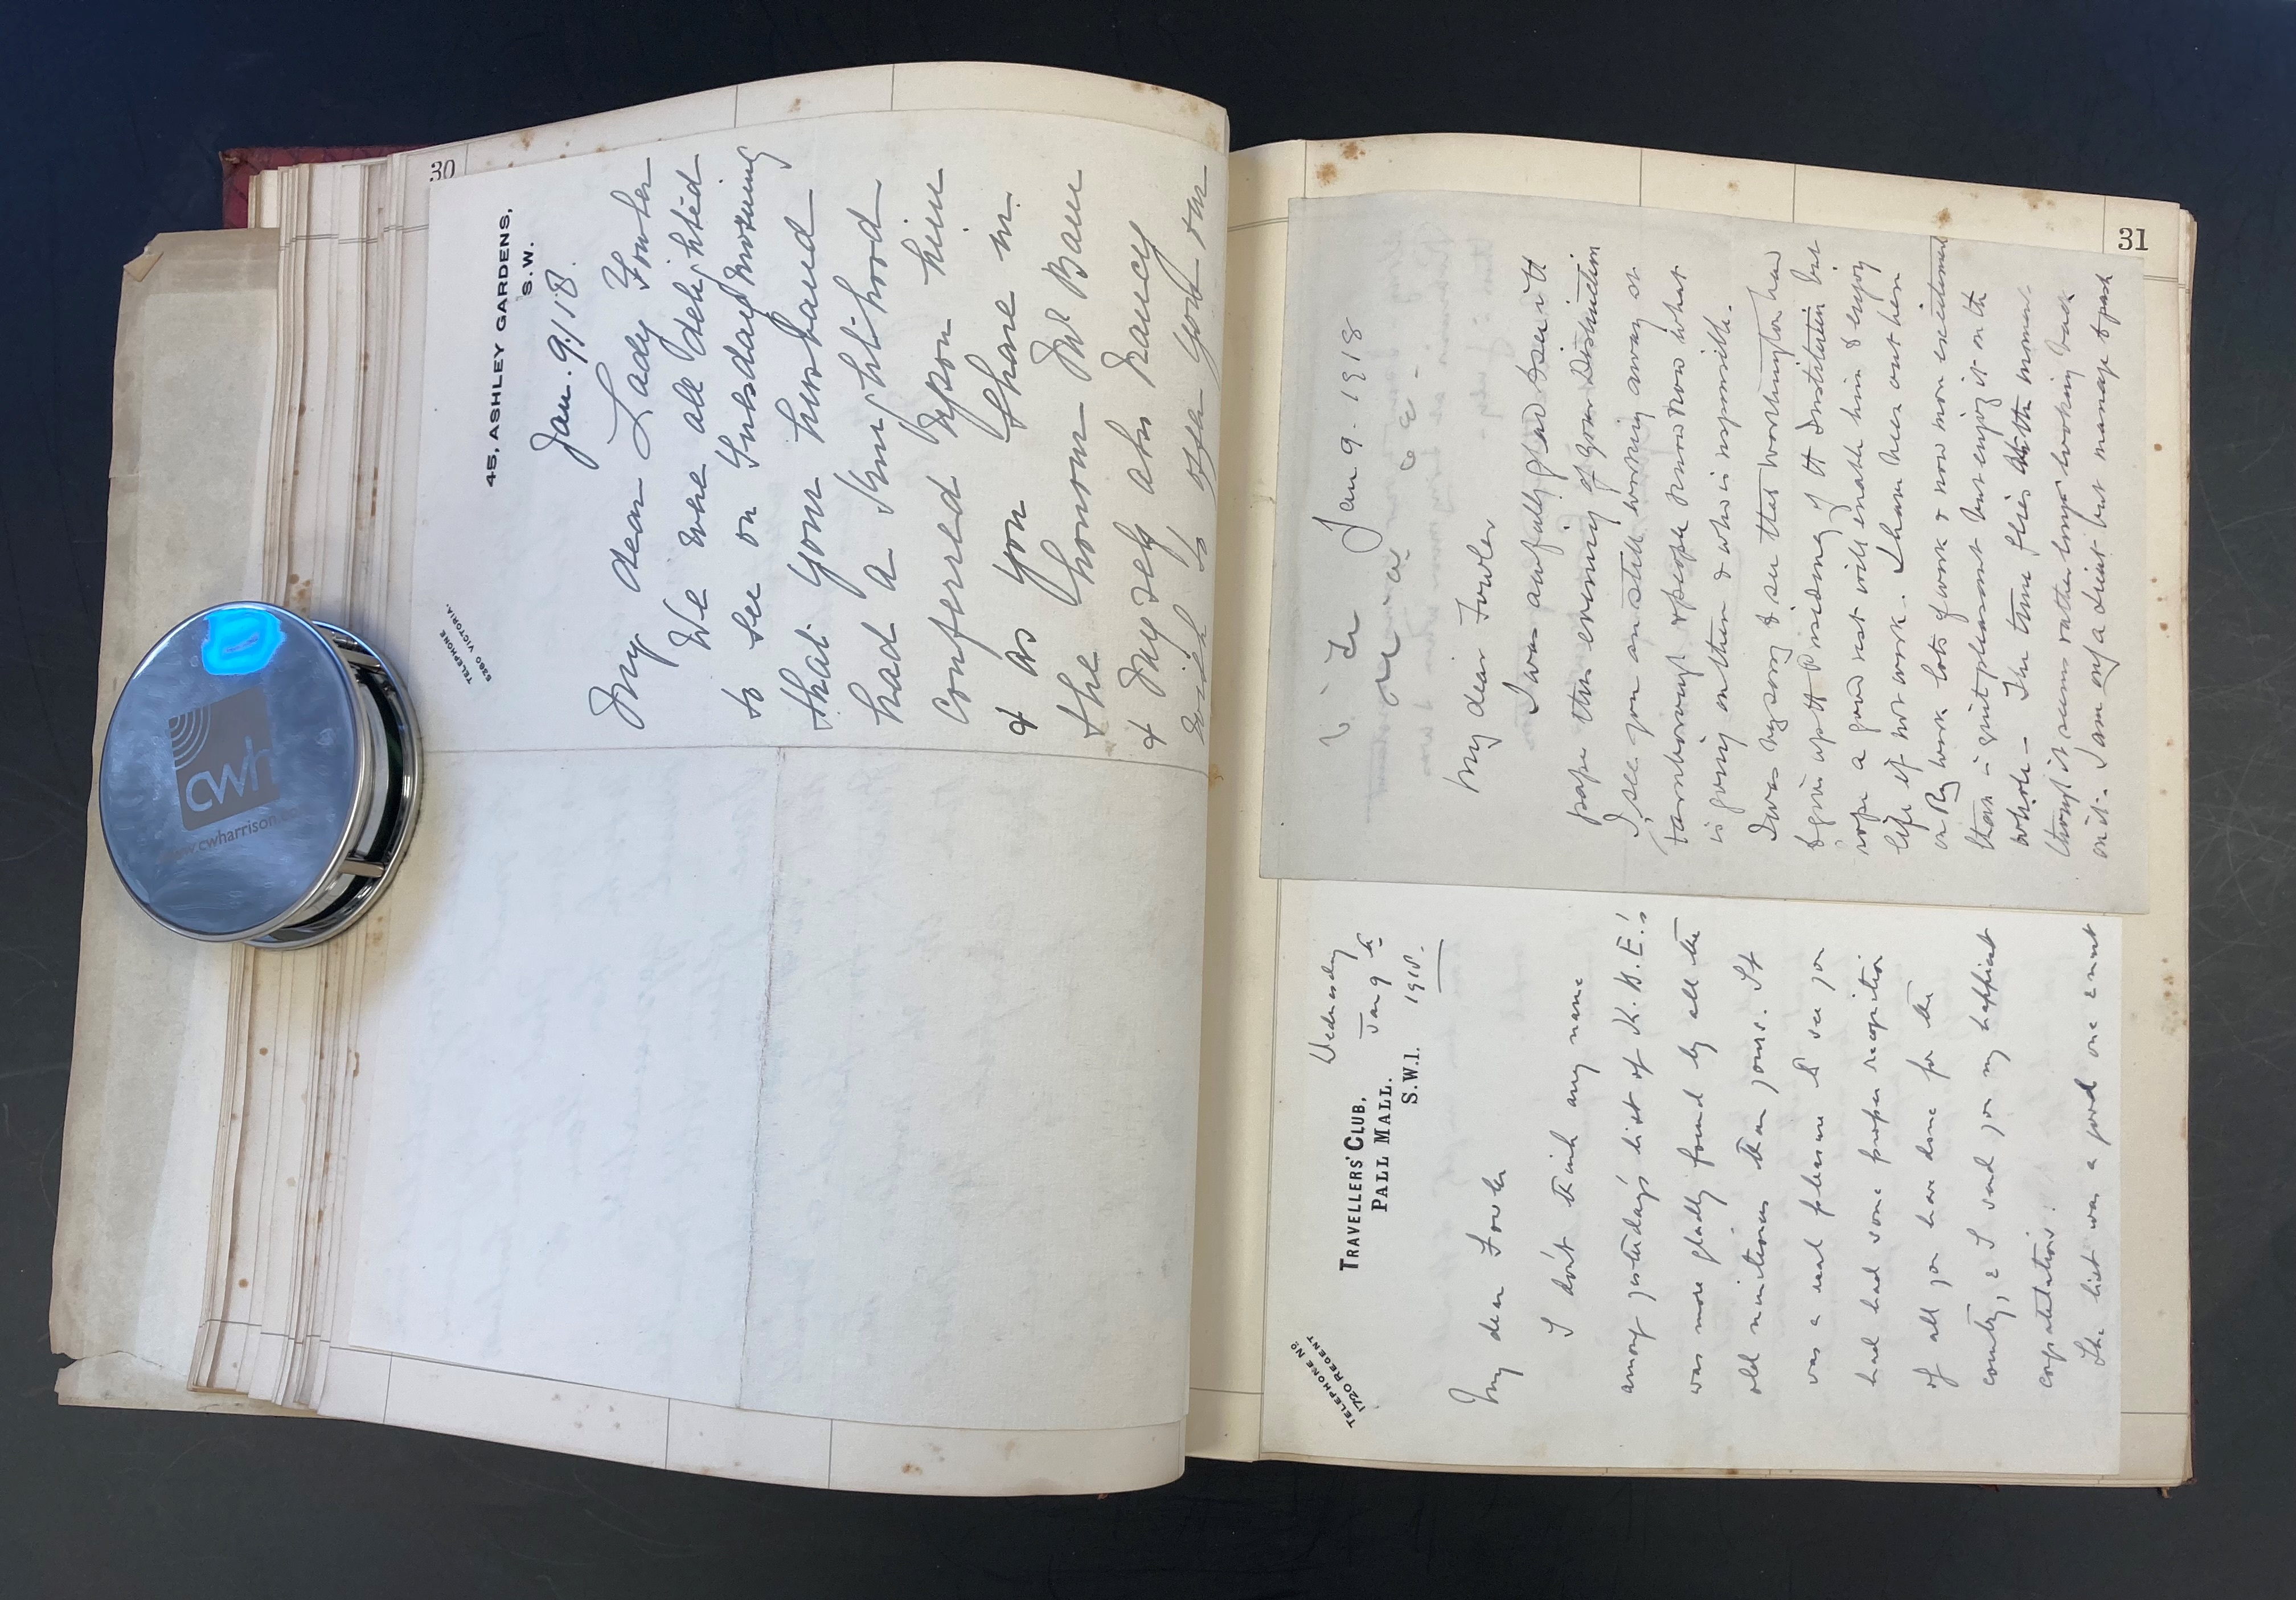 30
45, ASHLEY GARDENS,
S.W.
TELEPHONE
6280 VICTORIA.
Jan. 9/18.
My dear Lady Fowler
We were all delighted
to see on Tuesday Morning
that your husband
had a Knighthood
conferred upon him
& as you share in
the honour Mr Bain
& Myself also Nancy
wish to offer you our
cwh
www.cwharrison.co
31
Jan 9. 1918
My dear Fowler
I was awfully glad to see in the
paper this evening of your distinction
I see you are still working away at
Farnborough & people know now what
is going on there & who is responsible.
I was very sorry to see that Worthington has
to give up the Presidency of the Institution but
hope a good rest will enable him to enjoy
life if not work. I have been out here
on Rly work lots of work & now more excitement
than is quite pleasant but enjoy it on the
whole – The time flies at the moment
though it seems rather long looking back
on it. I am only a but manage to
TRAVELLERS' CLUB,
PALL MALL.
S.W.1.
TELEPHONE NO.
REGENT
Wednesday
Jan 9th
1918.
My dear Fowler
I don't think any name
among yesterday's list of K.B.E.'s
was more gladly found by all the
old munitioners than yours. It
was a real pleasure to see you
had had some proper recognition
of all you have done for the
country, & I send you my happiest
congratulations.
The list was a good one & must